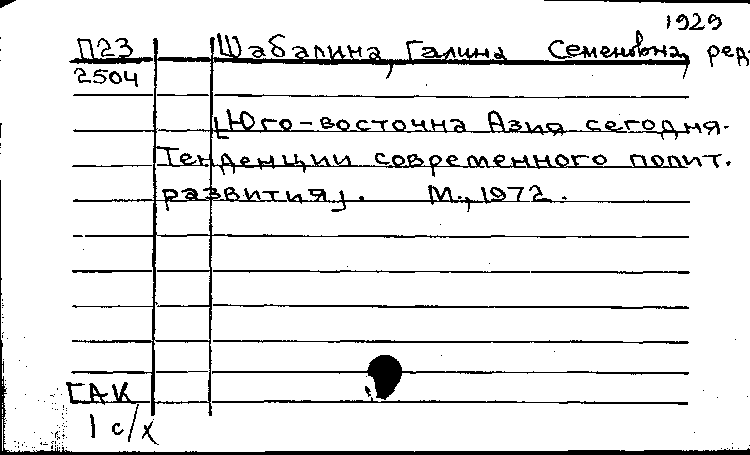 1929
П23 Шабалина, Галина Семеновна, ред.
2504
[Юго-восточна Азия сегодня.
Тенденции современного полит.
развития]. М., 1972.
ГАК
1 с/х